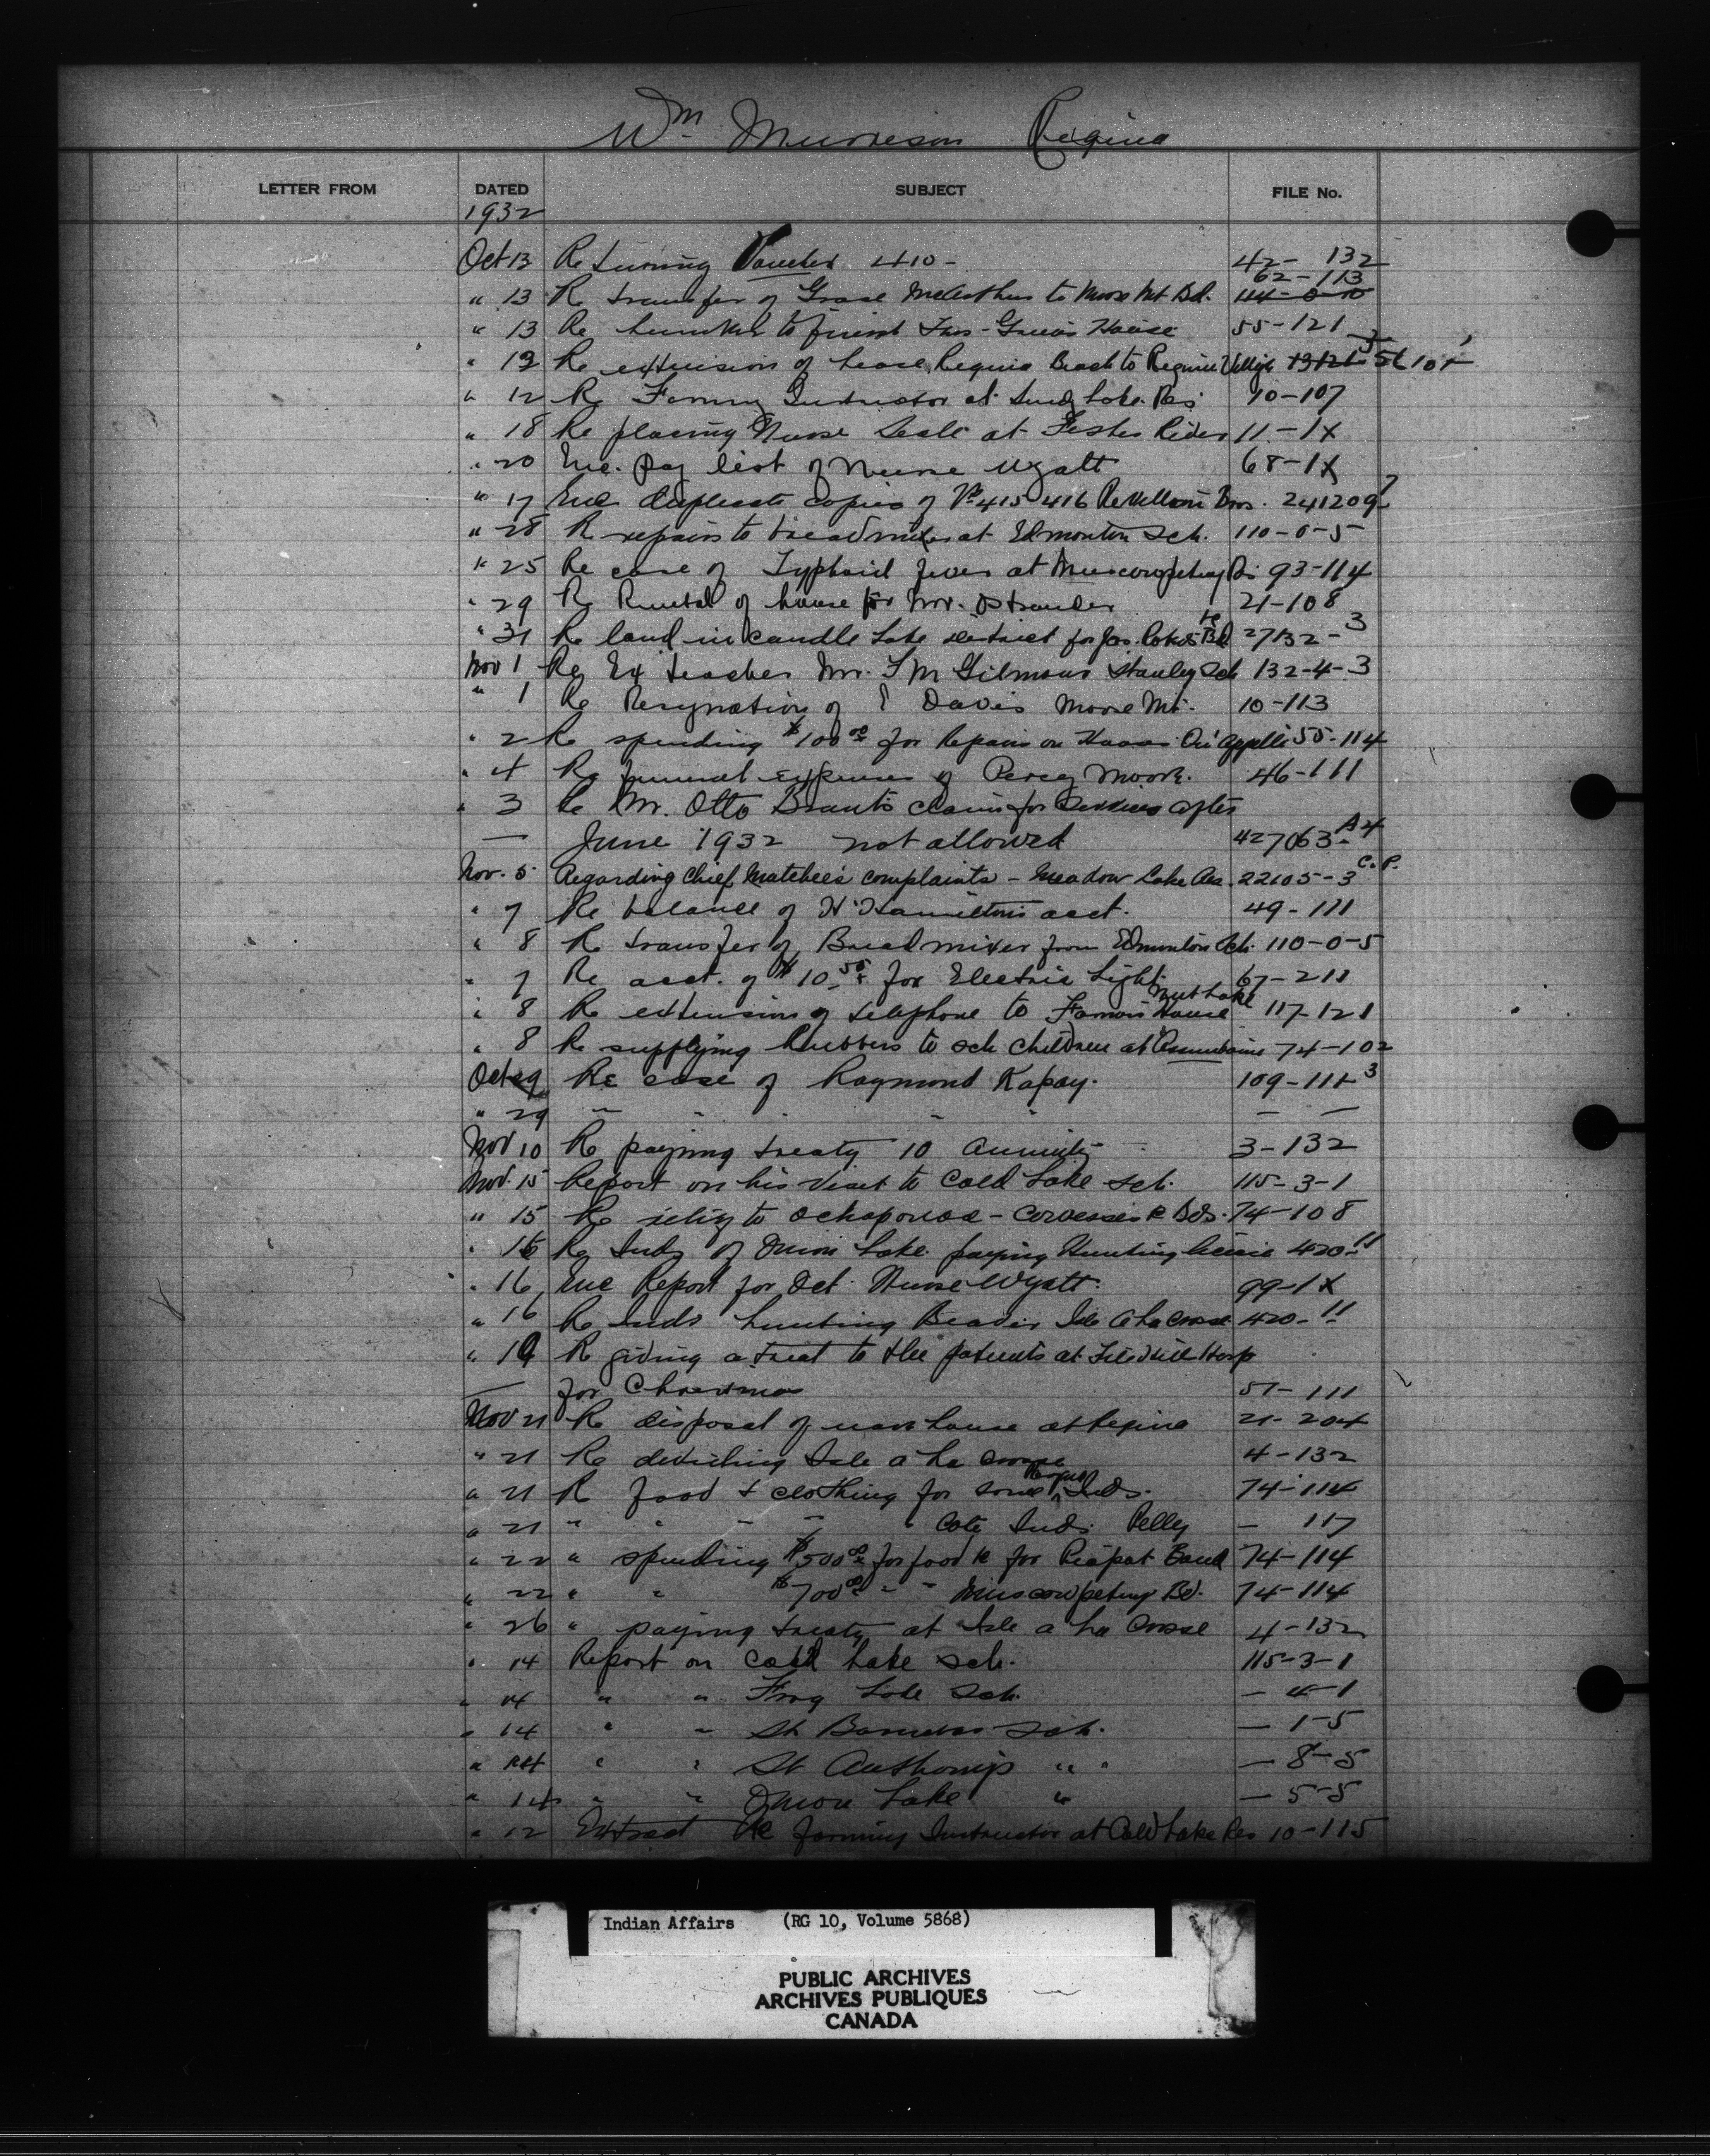 Wm Murison Regina
LETTER FROM DATED SUBJECT FILE No.
1932
Oct 13 Returning Voucher 410 - 42- 132
62-113
" 13 Re transfer of Grace McArthur to Moose Mt Bd. 44-0-10
" 13 Re lumber to finish House 55-121
" 12 Re extension of lease Regina Beach to Regina
" 12 Re Farming Instructor at Lake Res 10-107
" 18 Re placing Nurse at 11-1X
" 20 Enc. pay list of Nurse Wyatt 68-1X
" 17 Enc duplicate copies of 415 416 Revillon Bros. 241209
" 28 Re repairs to bread mixer at Edmonton Sch. 110-0-5
" 25 Re case of Typhoid fever at Muscowpetung 93-114
" 29 Re Rental of house for Mr. Ostrander 21-108
" 31 Re land in Candle Lake district for Jas. Bd 27132-3
Nov 1 Re Ex teacher Mr. Gilmour Stanley Sch 132-4-3
" 1 Re Resignation of Davis Moose Mt. 10-113
" 2 Re spending $100.00 for Repairs on House Qu'Appelle 55-114
" 4 Re funeral expenses of Percy Moore. 46-111
" 3 Re Mr. Otto Brant's claim for services after
— June 1932 not allowed 427063-A4
Nov. 5 Regarding Chief Matchee's complaints - Meadow Lake Res. 22105-3 C.P.
" 7 Re balance of Hamilton's acct. 49-111
" 8 Re transfer of Bread mixer from Edmonton Sch. 110-0-5
" 7 Re acct. of $10.50 for Electric Light 67-211
Nut Lake
" 8 Re extension of telephone to House 117-121
" 8 Re supplying Rubbers to sch children at Assiniboine 74-102
Oct 29 Re case of Raymond Kapay. 109-111-3
" 29 " " " " " — —
Nov 10 Re paying treaty 10 Annuity 3-132
Nov. 15 Report on his visit to Cold Lake Sch. 115-3-1
" 15 Re relief to Ochapowace - Cowessess Bds. 74-108
" 16 Re Inds of Onion Lake paying Hunting license 420-11
" 16 Enc Report for Oct. Nurse Wyatt. 99-1X
" 16 Re Inds hunting Beaver Ile a la Crosse 420-11
" 19 Re giving a treat to the patients at File Hills Hosp
— for Christmas 51-111
Nov 21 Re disposal of house at Regina 21-204
" 21 Re Isle a la Crosse 4-132
" 21 Re food & clothing for some Inds. 74-114
" 21 " " " " " Cote Inds. Pelly — 117
" 22 " spending $500.00 for food for Piapot Band 74-114
" 22 " " $700.00 " " Muscowpetung Bd. 74-114
" 26 " paying treaty at Isle a la Crosse 4-132
" 14 Report on Cold Lake Sch. 115-3-1
" 14 " " Frog Lake Sch. — 4-1
" 14 " " St Barnabas Sch. — 1-5
" 14 " " St Anthonys " " — 8-5
" 14 " " Onion Lake " — 5-5
" 12 Extract Re farming Instructor at Cold Lake Res 10-115
Indian Affairs (RG 10, Volume 5868)
PUBLIC ARCHIVES
ARCHIVES PUBLIQUES
CANADA